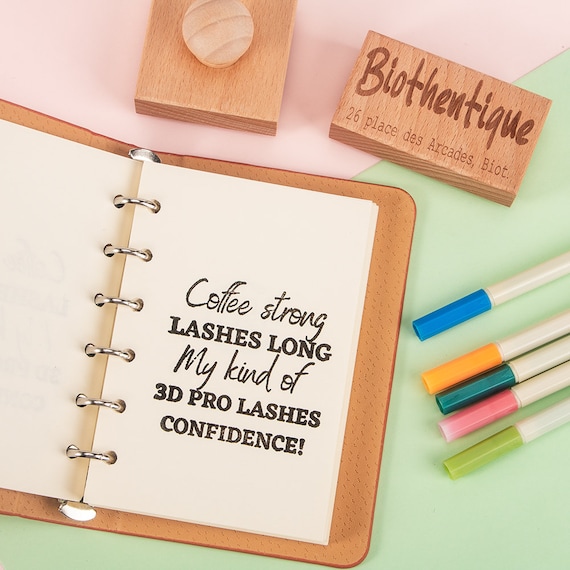 Biothentique
26 place des Arcades, Biot.
Coffee strong
LASHES LONG
My kind of
3D PRO LASHES
CONFIDENCE!